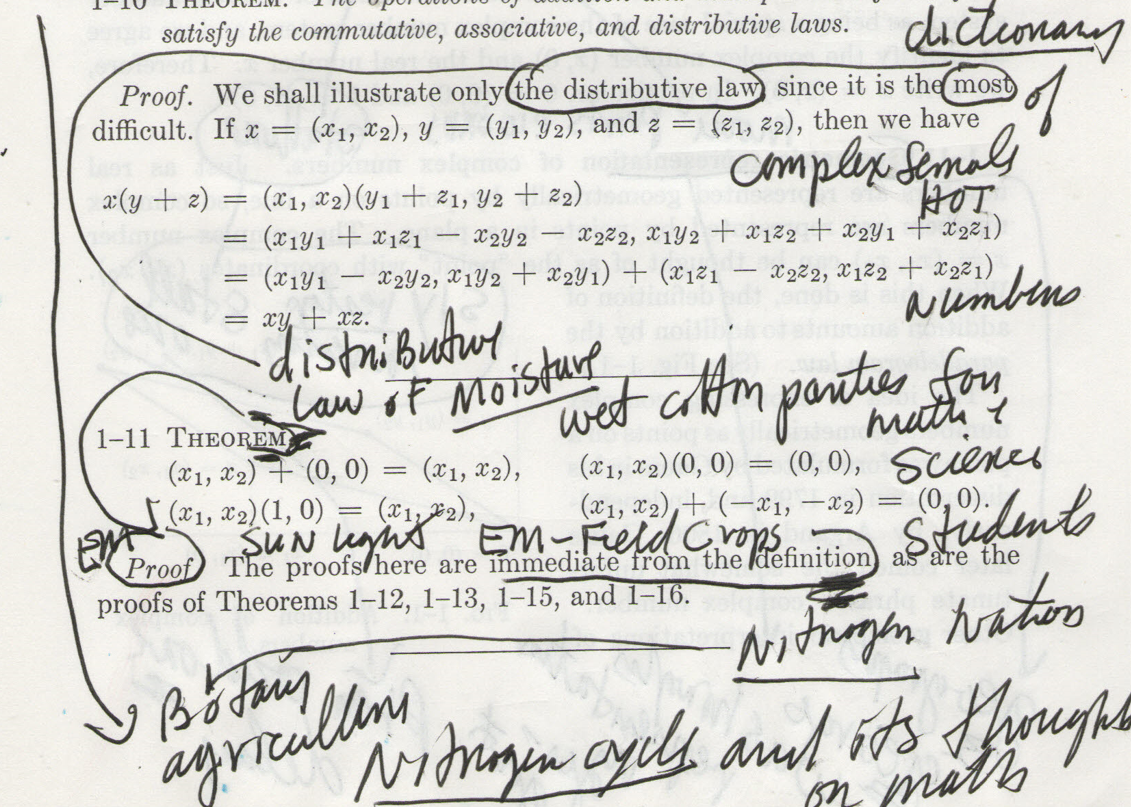 1–10 THEOREM. The operations of addition and
satisfy the commutative, associative, and distributive laws.
Dictionary
Proof. We shall illustrate only the distributive law, since it is the most
of
difficult. If x = (x₁, x₂), y = (y₁, y₂), and z = (z₁, z₂), then we have
complex
HOT
x(y + z) = (x₁, x₂)(y₁ + z₁, y₂ + z₂)
= (x₁y₁ + x₁z₁ − x₂y₂ − x₂z₂, x₁y₂ + x₁z₂ + x₂y₁ + x₂z₁)
= (x₁y₁ − x₂y₂, x₁y₂ + x₂y₁) + (x₁z₁ − x₂z₂, x₁z₂ + x₂z₁)
numbers
= xy + xz.
distributive
Law of Moisture
wet cotton panties for
math &
science
students
1–11 THEOREM.
(x₁, x₂) + (0, 0) = (x₁, x₂), (x₁, x₂)(0, 0) = (0, 0)
(x₁, x₂)(1, 0) = (x₁, x₂), (x₁, x₂) + (−x₁, − x₂) = (0, 0).
EM SUN light EM-Field Crops
Proof The proofs here are immediate from the definition, as are the
proofs of Theorems 1–12, 1–13, 1–15, and 1–16.
Nitrogen Nation
Botany
agriculture
Nitrogen cycles and ots thoughts
on math